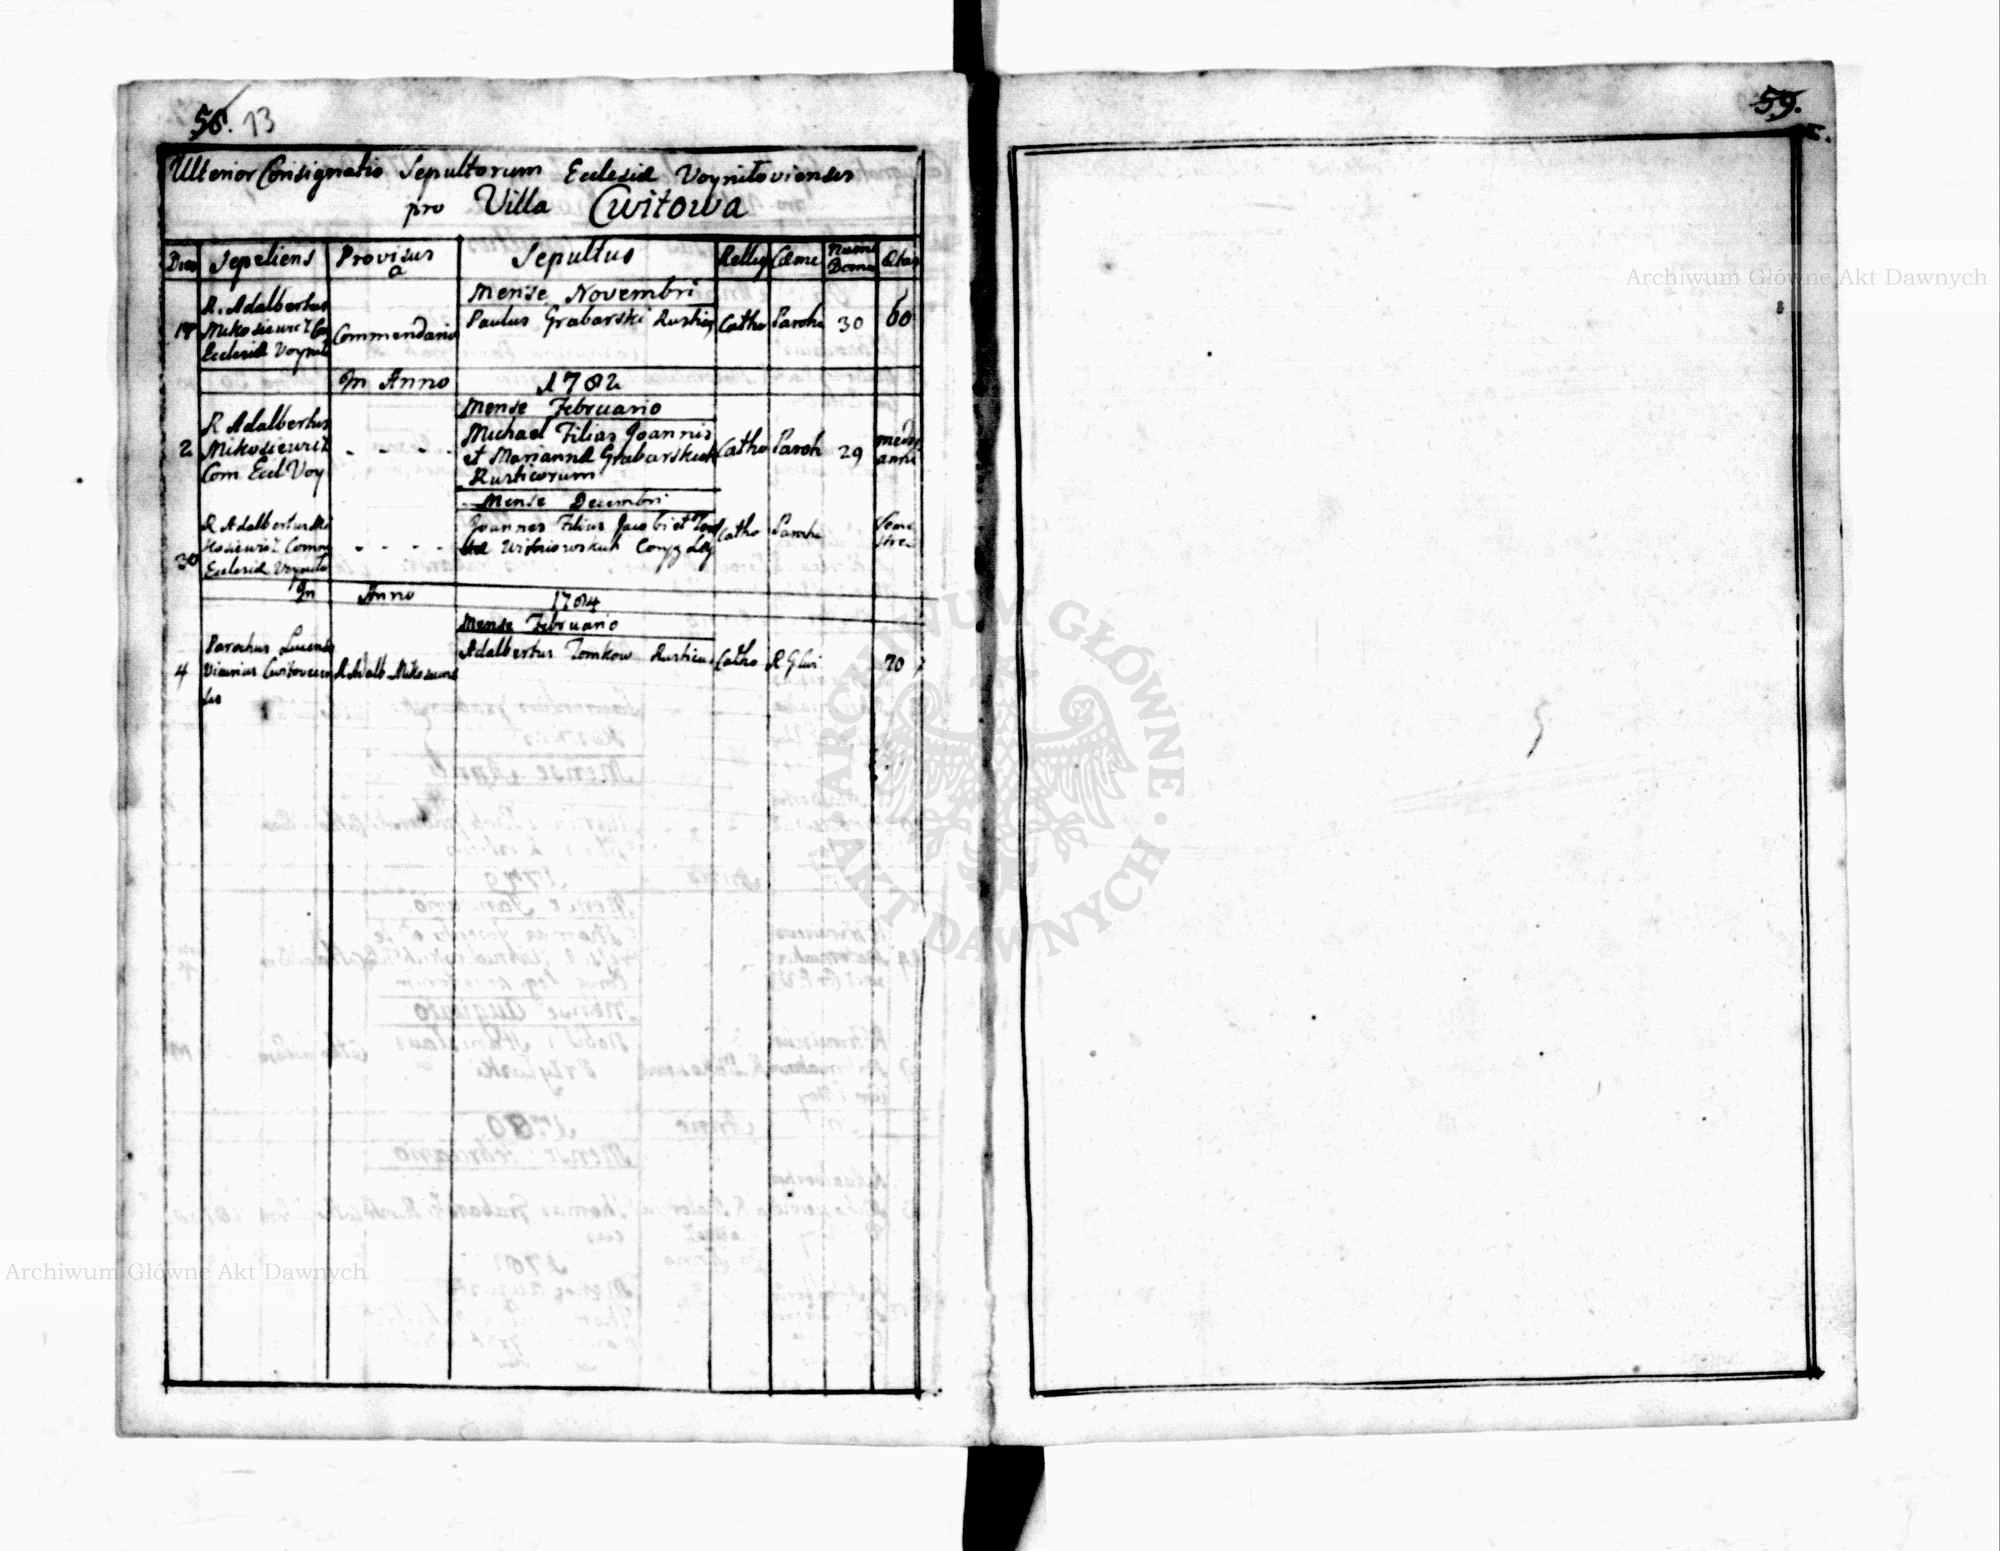 58. 13
Ulterior Consignatio Sepultorum Eclesiæ Voyniloviensis
pro Villa Cwitowa
Dies Sepeliens Provisus a Sepultus Relligi Cœme Nume Domus Ætas
Mense Novembri
R. Adalbertus
Mikosiewicz Com
Eclesiæ Voynilo
Commendario
Paulus Grabarski Rusticus Catho Paroch 30 60
In Anno 1782
Mense Februario
2 R Adalbertus
Mikosiewicz
Com Eccl Voy
- - - -
Michael Filius Joannis
et Mariannæ Grabarskich
Rusticorum
Catho Paroch 29 medij
anni
Mense Decembri
30 R Adalbertus Mi
kosiewicz Comm
Eclesiæ Voynilo
- - - -
Joannes Filius Jacobi et
Wisniowskich Conjg Leg
Catho Paroch Seme
stre
In Anno 1784
Mense Februario
4 Parochus
Vicarius Cwitovien
sis
R Adalb Mikosiewic
Adalbertus Tomkow Rusticus Catho 70
59.
Archiwum Główne Akt Dawnych
ARCHIWUM GŁÓWNE
AKT DAWNYCH
Archiwum Główne Akt Dawnych